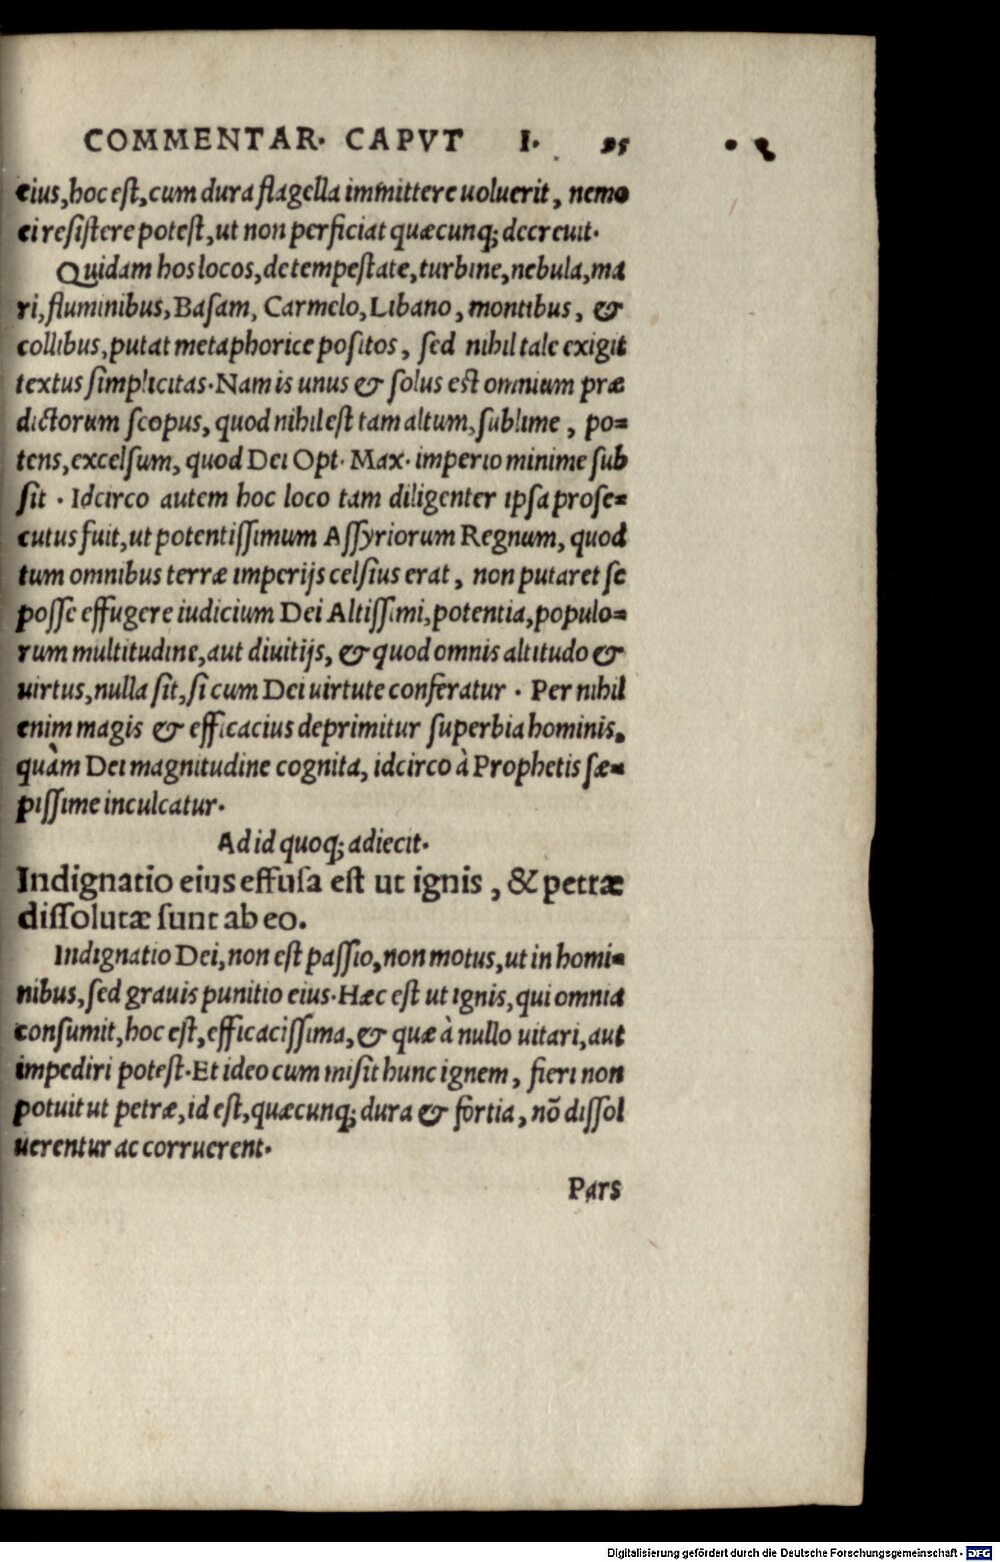 COMMENTAR. CAPVT I. 25
eius, hoc est, cum dura flagella immittere uoluerit, nemo
ei resistere potest, ut non perficiat quæcunq; decreuit.
Quidam hos locos, de tempestate, turbine, nebula, ma
ri, fluminibus, Basam, Carmelo, Libano, montibus, &
collibus, putat metaphorice positos, sed nihil tale exigit
textus simplicitas. Nam is unus & solus est omnium præ
dictorum scopus, quod nihil est tam altum, sublime, po=
tens, excelsum, quod Dei Opt. Max. imperio minime sub
sit. Idcirco autem hoc loco tam diligenter ipsa prose=
cutus fuit, ut potentissimum Assyriorum Regnum, quod
tum omnibus terræ imperijs celsius erat, non putaret se
posse effugere iudicium Dei Altissimi, potentia, populo=
rum multitudine, aut diuitijs, & quod omnis altitudo &
uirtus, nulla sit, si cum Dei uirtute conferatur. Per nihil
enim magis & efficacius deprimitur superbia hominis,
quàm Dei magnitudine cognita, idcirco à Prophetis sæ=
pissime inculcatur.
Ad id quoq; adiecit.
Indignatio eius effusa est ut ignis, & petræ
dissolutæ sunt ab eo.
Indignatio Dei, non est passio, non motus, ut in homi=
nibus, sed grauis punitio eius. Hæc est ut ignis, qui omnia
consumit, hoc est, efficacissima, & quæ à nullo uitari, aut
impediri potest. Et ideo cum misit hunc ignem, fieri non
potuit ut petræ, id est, quæcunq; dura & fortia, nõ dissol
uerentur ac corruerent.
Pars
Digitalisierung gefördert durch die Deutsche Forschungsgemeinschaft - DFG